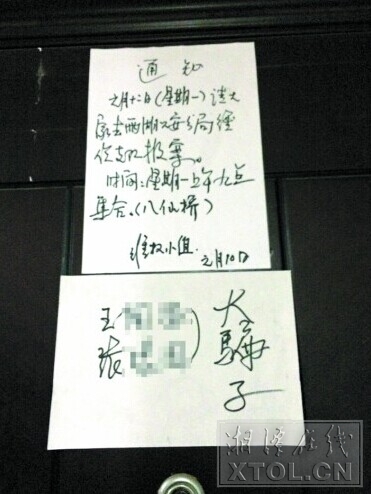 通知
元月十二日(星期一)请大
家去两湖公安分局经
侦支队报案。
时间:星期一上午九点
集合。(八仙桥)
维权小组
元月10日
王
张
)
大骗子
湘潭在线
XTOL.CN